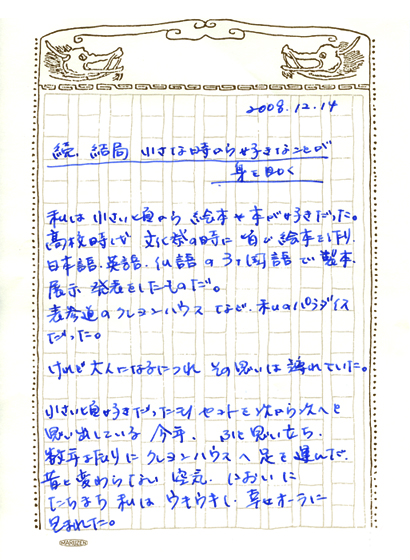 2008.12.14
続. 結局 小さな時から好きなことが
身を助く
私は小さい頃から絵本や本が好きだった。
高校時代 文化祭の時に 皆で絵本を作り
日本語、英語、仏語の3ヶ国語で製本、
展示 発表をしたものだ。
表参道のクレヨンハウスなど、私のパラダイス
だった。
けれど大人になるにつれ その思いは薄れていた。
小さい頃好きだったもの セットを次から次へと
思い出している 今年、ふと思い立ち、
数年ぶりにクレヨンハウスへ足を運んだ。
昔と変わらない 空気、においに
たちまち 私は ウキウキし、幸せオーラに
包まれた。
MARUZEN